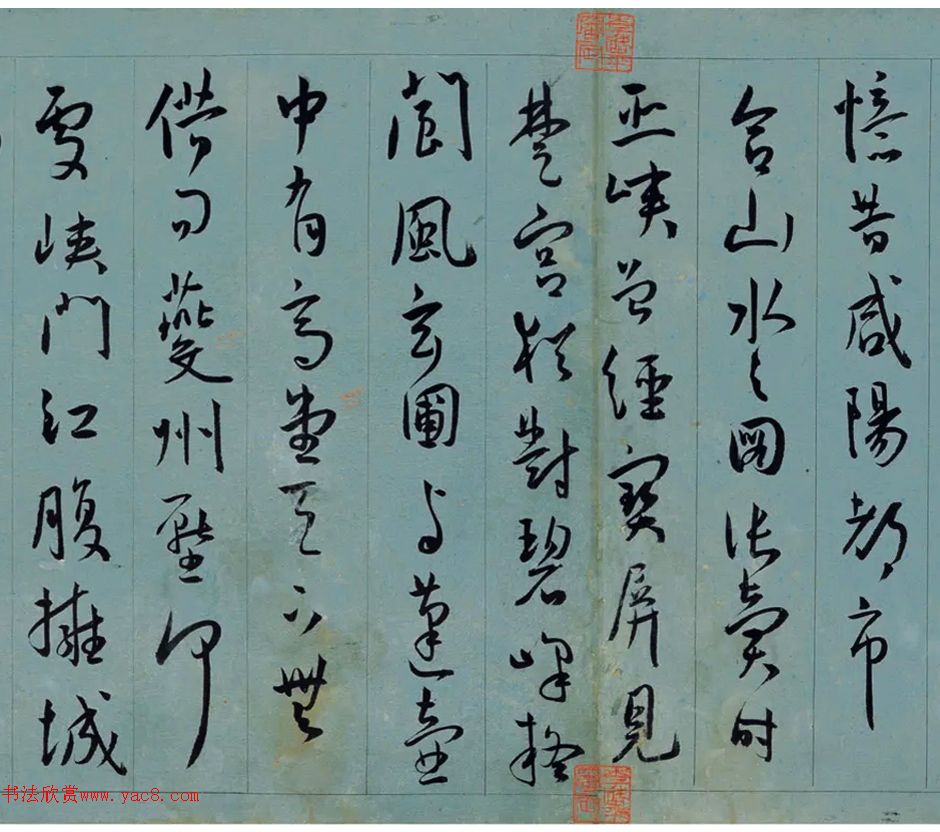 憶昔咸陽都市
合山水之圖張賣時
巫峽曾經寶屏見
楚宮猶對碧峰疑
閬風玄圃與蓬壺
中有高堂天下無
借問夔州壓何
處峽門江腹擁城
书法欣赏www.yac8.com